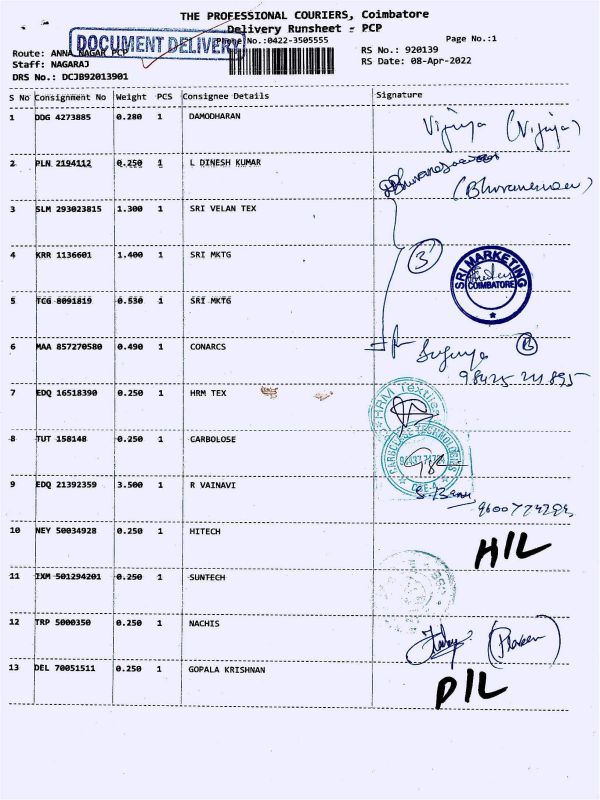 THE PROFESSIONAL COURIERS, Coimbatore
Delivery Runsheet - PCP
DOCUMENT DELIVERY
Phone No.:0422-3505555
Page No.:1
Route: ANNA NAGAR PCP
RS No.: 920139
Staff: NAGARAJ
RS Date: 08-Apr-2022
DRS No.: DCJB92013901
S No Consignment No Weight PCS Consignee Details Signature
1 DDG 4273885 0.280 1 DAMODHARAN Vijiya (Vijiya)
2 PLN 2194112 0.250 1 L DINESH KUMAR
3 SLM 293023815 1.300 1 SRI VELAN TEX
4 KRR 1136601 1.400 1 SRI MKTG 3
SRI MARKETING COIMBATORE
5 TCG 8091819 0.530 1 SRI MKTG
6 MAA 857270580 0.490 1 CONARCS
7 EDQ 16518390 0.250 1 HRM TEX
HRM Textiles
8 TUT 158148 0.250 1 CARBOLOSE
CARBOLOSE TECHNOLOGIES
9 EDQ 21392359 3.500 1 R VAINAVI S. Banu
10 NEY 50034928 0.250 1 HITECH H/L
11 IXM 501294201 0.250 1 SUNTECH
12 TRP 5000350 0.250 1 NACHIS
13 DEL 70051511 0.250 1 GOPALA KRISHNAN D/L